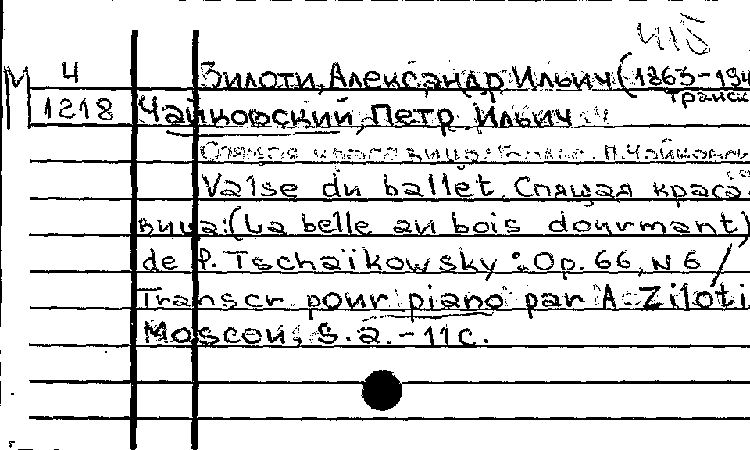 415
4 Зилоти, Александр Ильич (1863-194
М 1218 Чайковский, Петр Ильич транск
Спящая красавица: Вальс. П. Чайковск
Valse du ballet Спящая краса
вица: (La belle au bois dourmant)
de P. Tschaïkowsky : Op. 66, N 6 /
Transcr pour piano par A. Ziloti
Moscou, S. a. - 11 c.